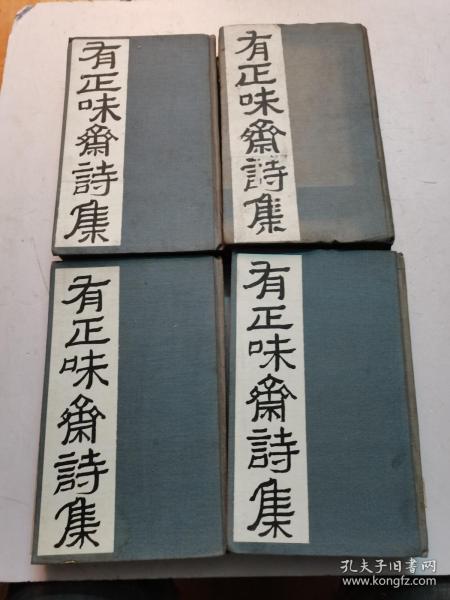 有正味齋詩集
有正味齋詩集
有正味齋詩集
有正味齋詩集
孔夫子旧书网
www.kongfz.com